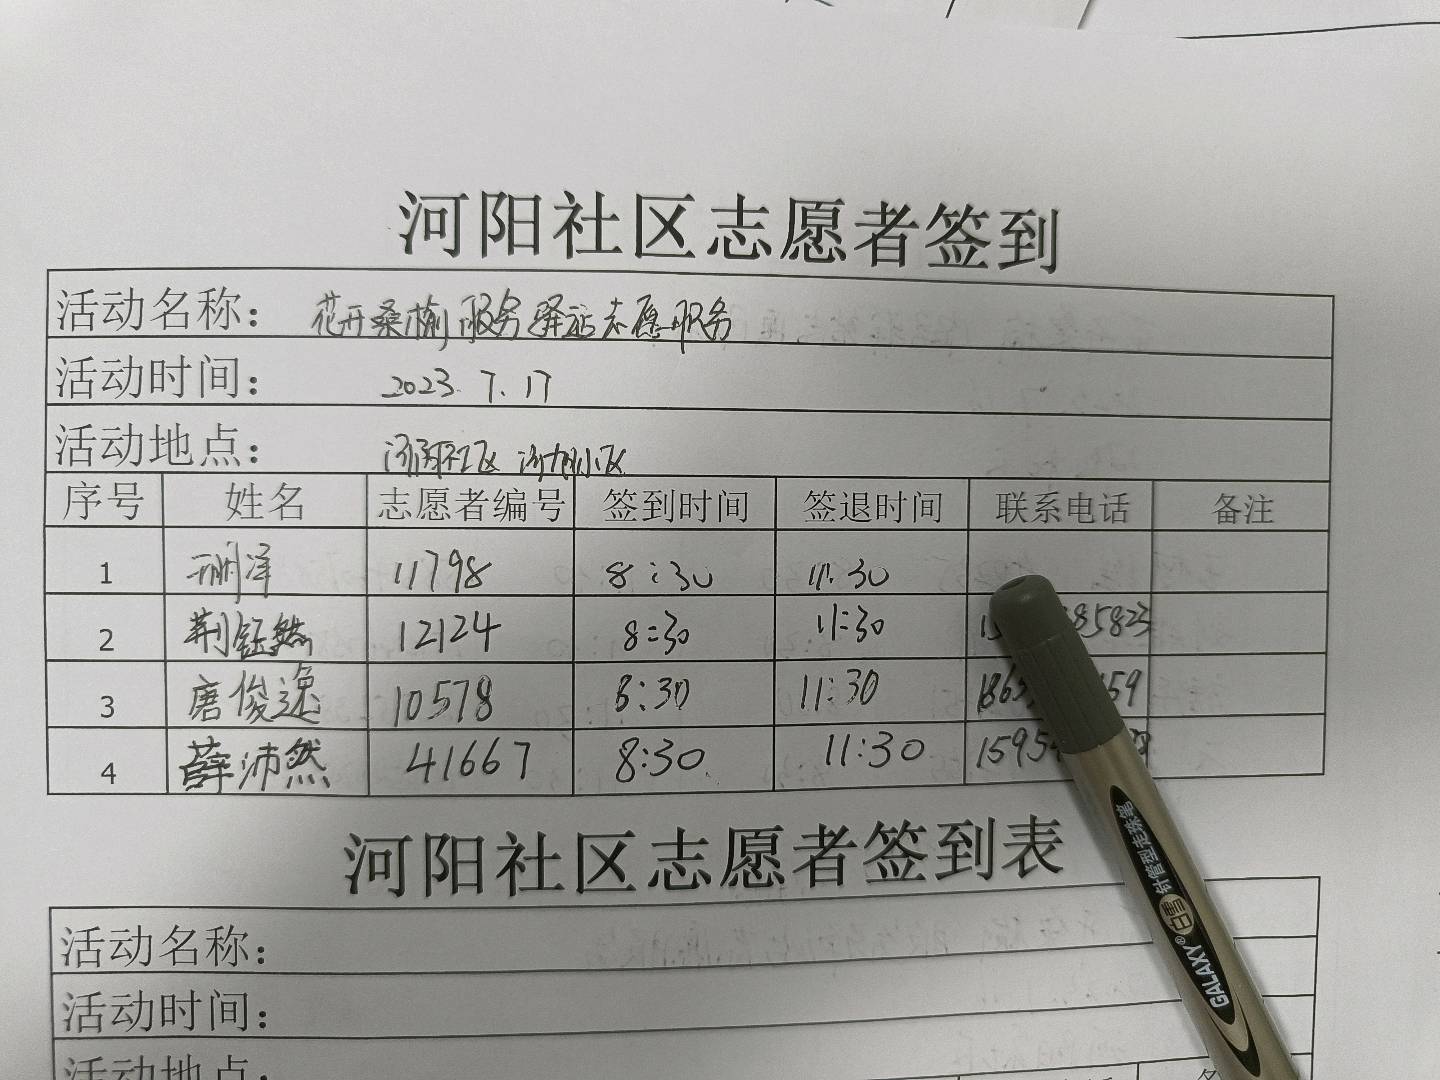 河阳社区志愿者签到
活动名称： 花开桑榆服务驿站志愿服务
活动时间： 2023.7.17
活动地点： 河阳社区 小区
序号 姓名 志愿者编号 签到时间 签退时间 联系电话 备注
1 泽 11798 8:30 11:30
2 荆钰然 12124 8:30 11:30 85823
3 唐俊逸 10578 8:30 11:30 1865 159
4 薛沛然 41667 8:30 11:30 1595
河阳社区志愿者签到表
活动名称：
活动时间：
活动地点：
针管型走珠笔
GALAXY®